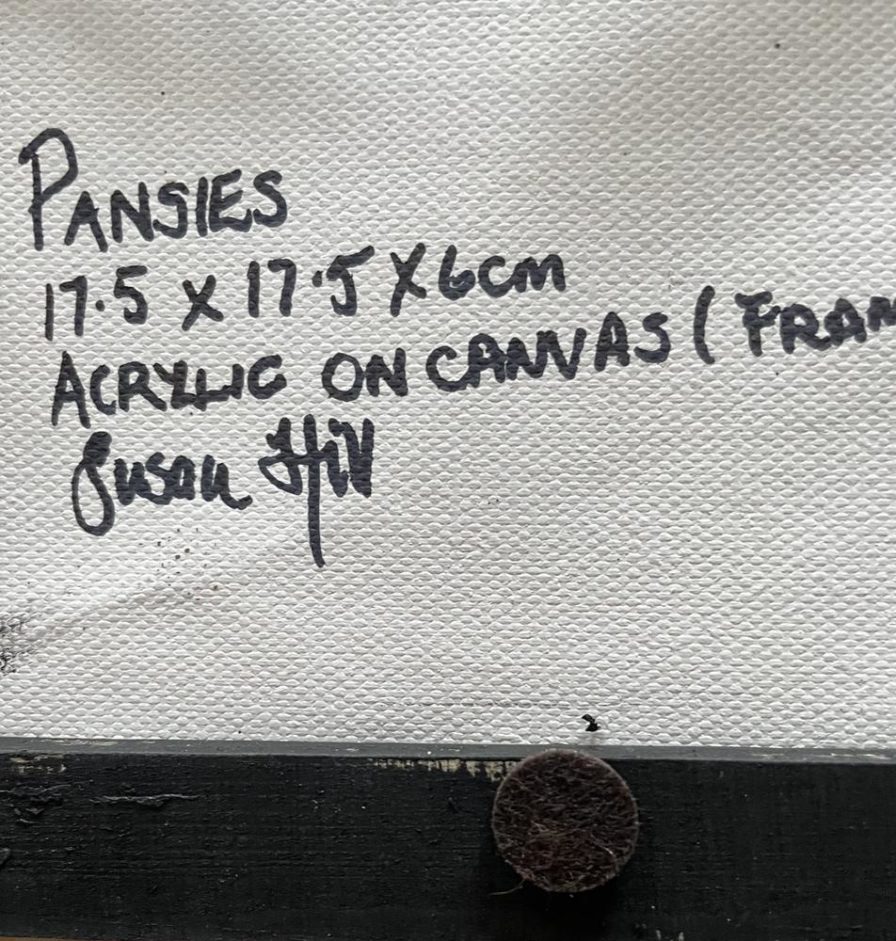 PANSIES
17.5 X 17.5 X 6cm
ACRYLIC ON CANVAS ( FRAM
Susan Hill